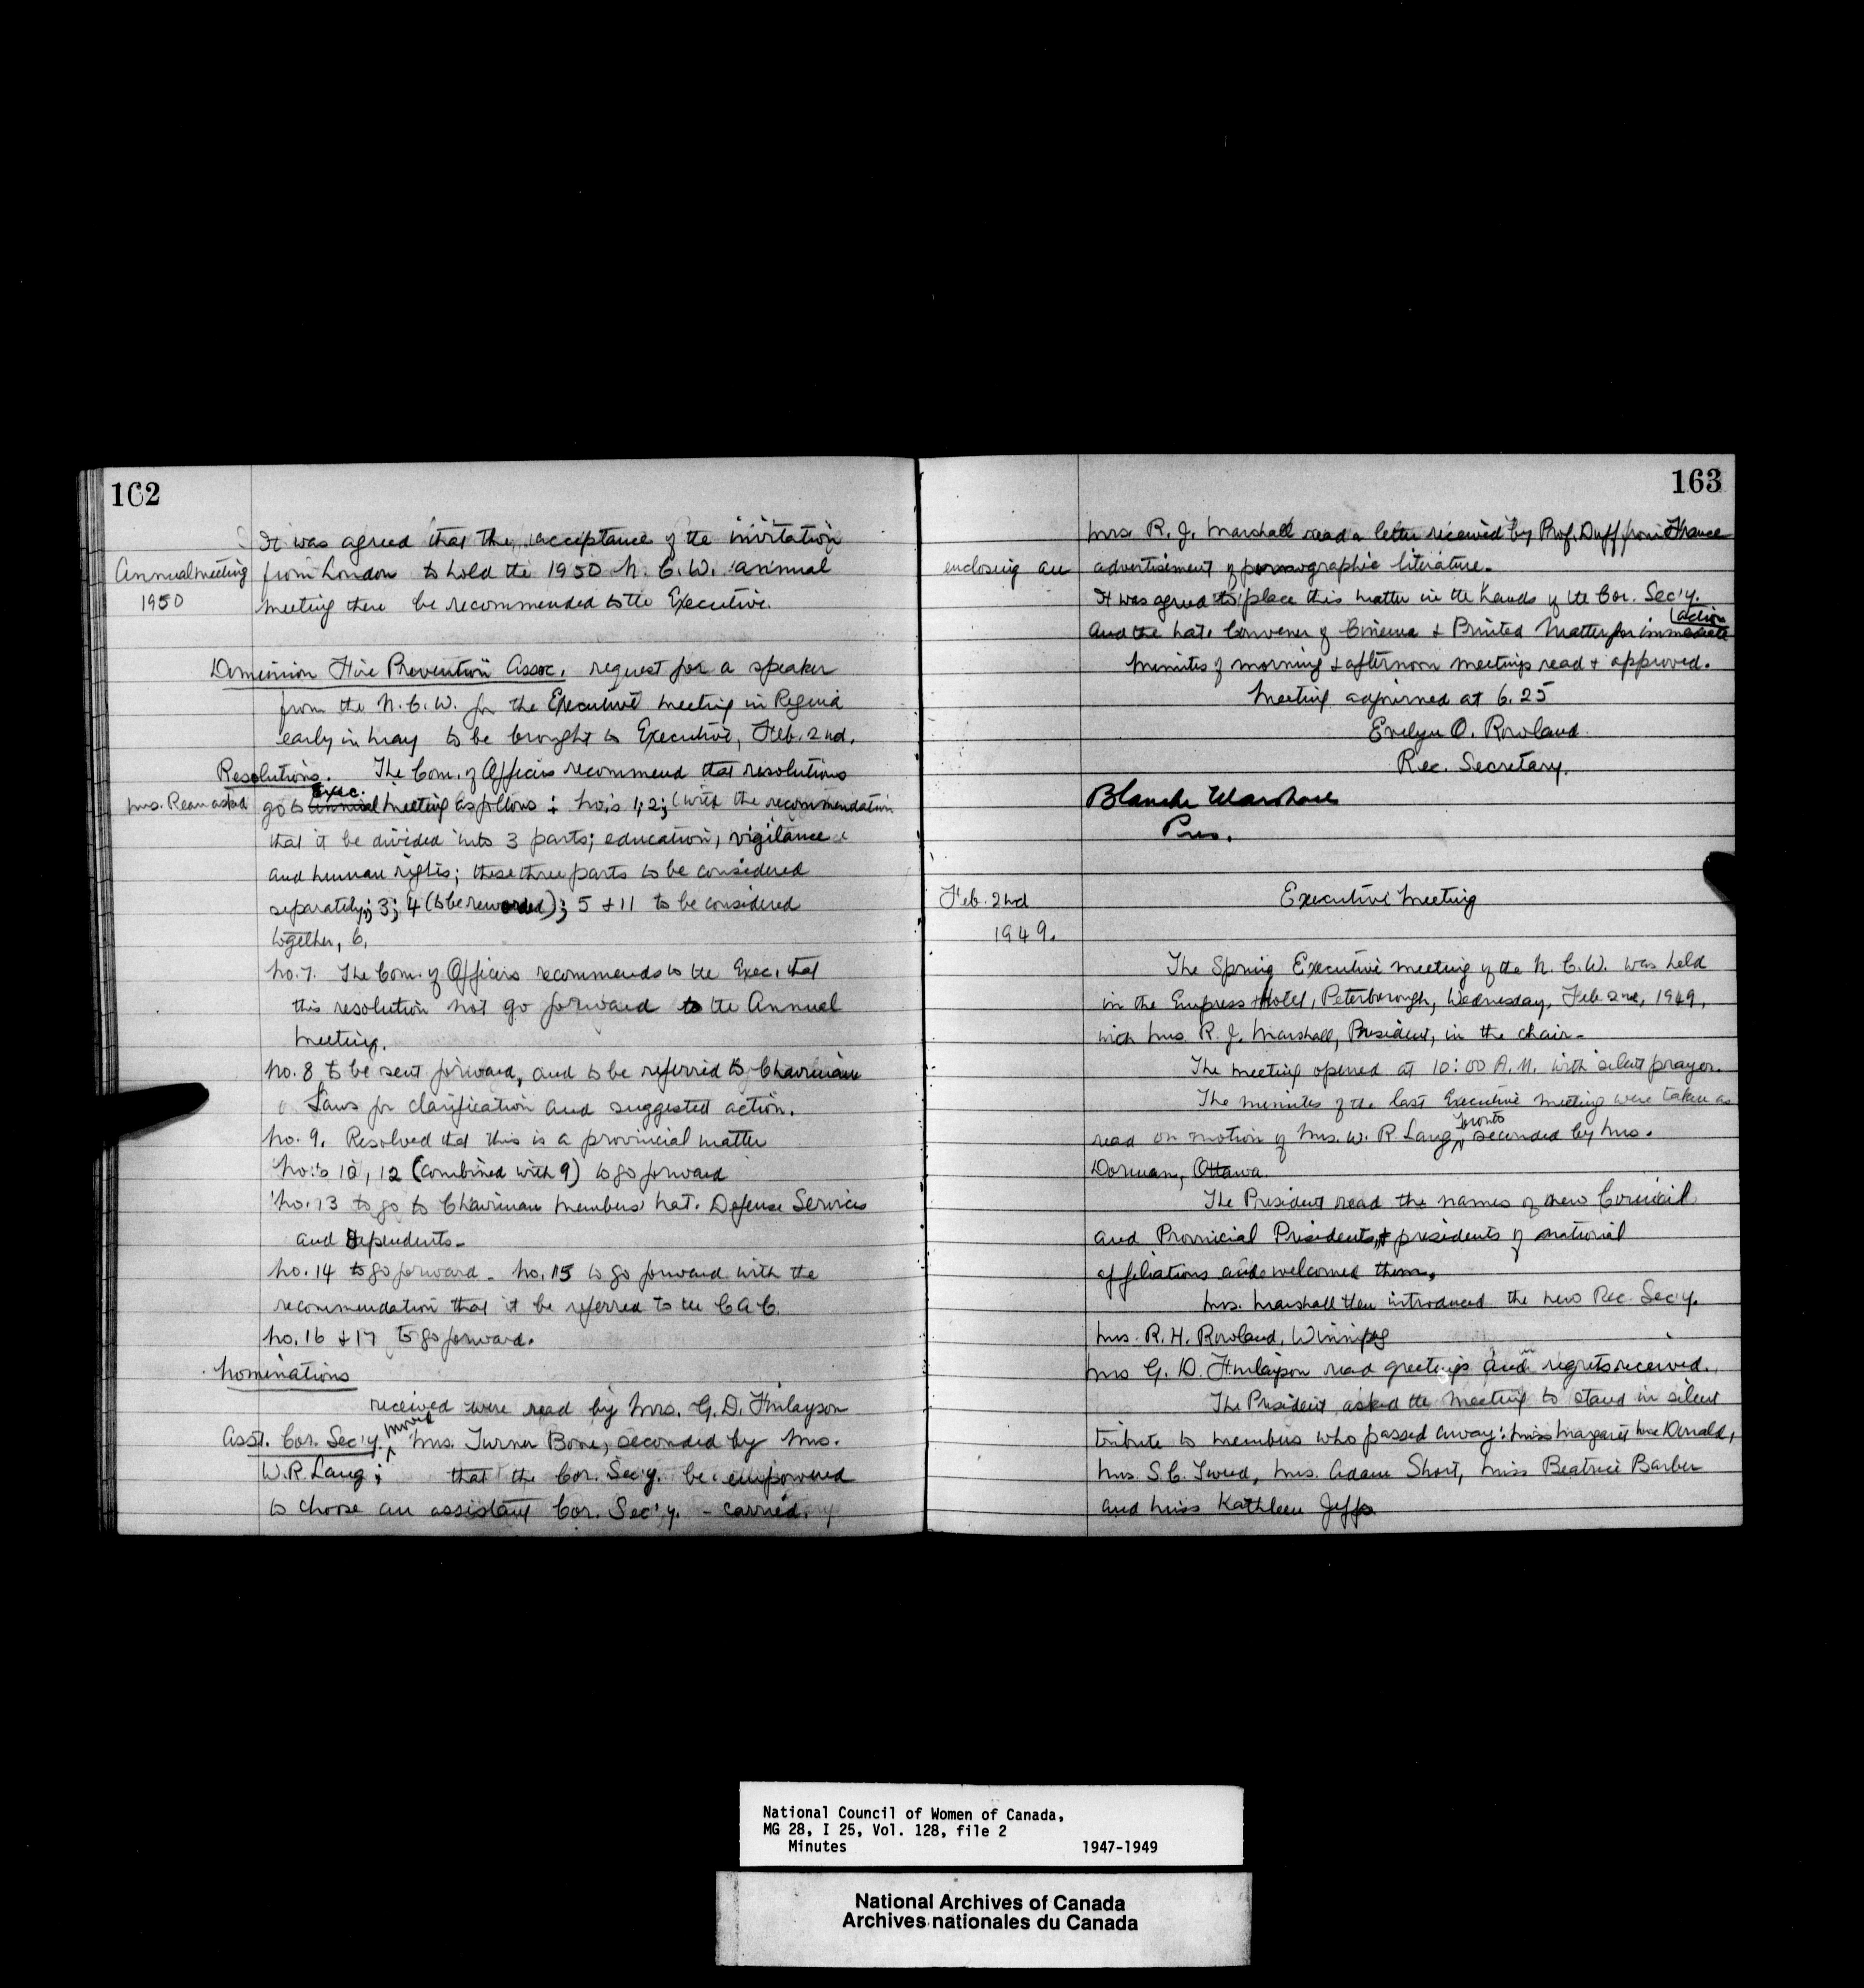 162
It was agreed that the acceptance of the invitation
Annual meeting from London to hold the 1950 N.C.W. annual
1950 meeting there be recommended to the Executive.
Dominion Fire Prevention Assoc. request for a speaker
from the N.C.W. for the Executive meeting in Regina
early in May to be brought to Executive, Feb. 2nd.
Resolutions. The Com. of Officers recommend that resolutions
Mrs. Ream asked go to Annual Exec. meeting as follows: No.'s 1; 2; (with the recommendation
that it be divided into 3 parts; education, vigilance
and human rights; these three parts to be considered
separately; 3; 4 (to be reworded); 5 + 11 to be considered
together, 6.
No. 7. The Com. of Officers recommends to the Exec. that
this resolution not go forward to the Annual
meeting.
No. 8 to be sent forward, and to be referred to Chairman
Laws for clarification and suggested action.
No. 9. Resolved that this is a provincial matter
No.'s 10, 12 (combined with 9) to go forward
No. 13 to go to Chairman members' Nat. Defense Services
and Dependents.
No. 14 to go forward. No. 15 to go forward with the
recommendation that it be referred to the C A C.
No. 16 + 17 to go forward.
Nominations
received were read by Mrs. G. D. Finlayson
Asst. Cor. Sec'y. Moved Mrs. Turner Bone, seconded by Mrs.
W. R. Lang; that the Cor. Sec'y. be empowered
to choose an assistant Cor. Sec'y. - carried.
163
Mrs. R. J. Marshall read a letter received by Prof. Duff from France
enclosing an advertisement of pornographic literature.
It was agreed to place this matter in the hands of the Cor. Sec'y.
and the Nat. Convener of Cinema + Printed Matter for immediate action
Minutes of morning + afternoon meetings read + approved.
Meeting adjourned at 6.25
Evelyn O. Rowland
Rec. Secretary.
Blanche Marshall
Pres.
Feb. 2nd Executive Meeting
1949.
The Spring Executive meeting of the N.C.W. was held
in the Empress Hotel, Peterborough, Wednesday, Feb 2nd, 1949,
with Mrs. R. J. Marshall, President, in the chair.
The meeting opened at 10:00 A.M. with silent prayer.
The minutes of the last Executive meeting were taken as
read on motion of Mrs. W. R. Lang, Toronto seconded by Mrs.
Dorman, Ottawa.
The President read the names of new Council
and Provincial Presidents, + presidents of national
affiliations and welcomed them.
Mrs. Marshall then introduced the new Rec. Sec'y.
Mrs. R. H. Rowland, Winnipeg
Mrs G. D. Finlayson read greetings and regrets received.
The President asked the meeting to stand in silent
tribute to members who passed away: Miss Margaret MacDonald,
Mrs. S. C. Tweed, Mrs. Adam Short, Miss Beatrice Barber
and Miss Kathleen Jeffs
National Council of Women of Canada,
MG 28, I 25, Vol. 128, file 2
Minutes 1947-1949
National Archives of Canada
Archives nationales du Canada